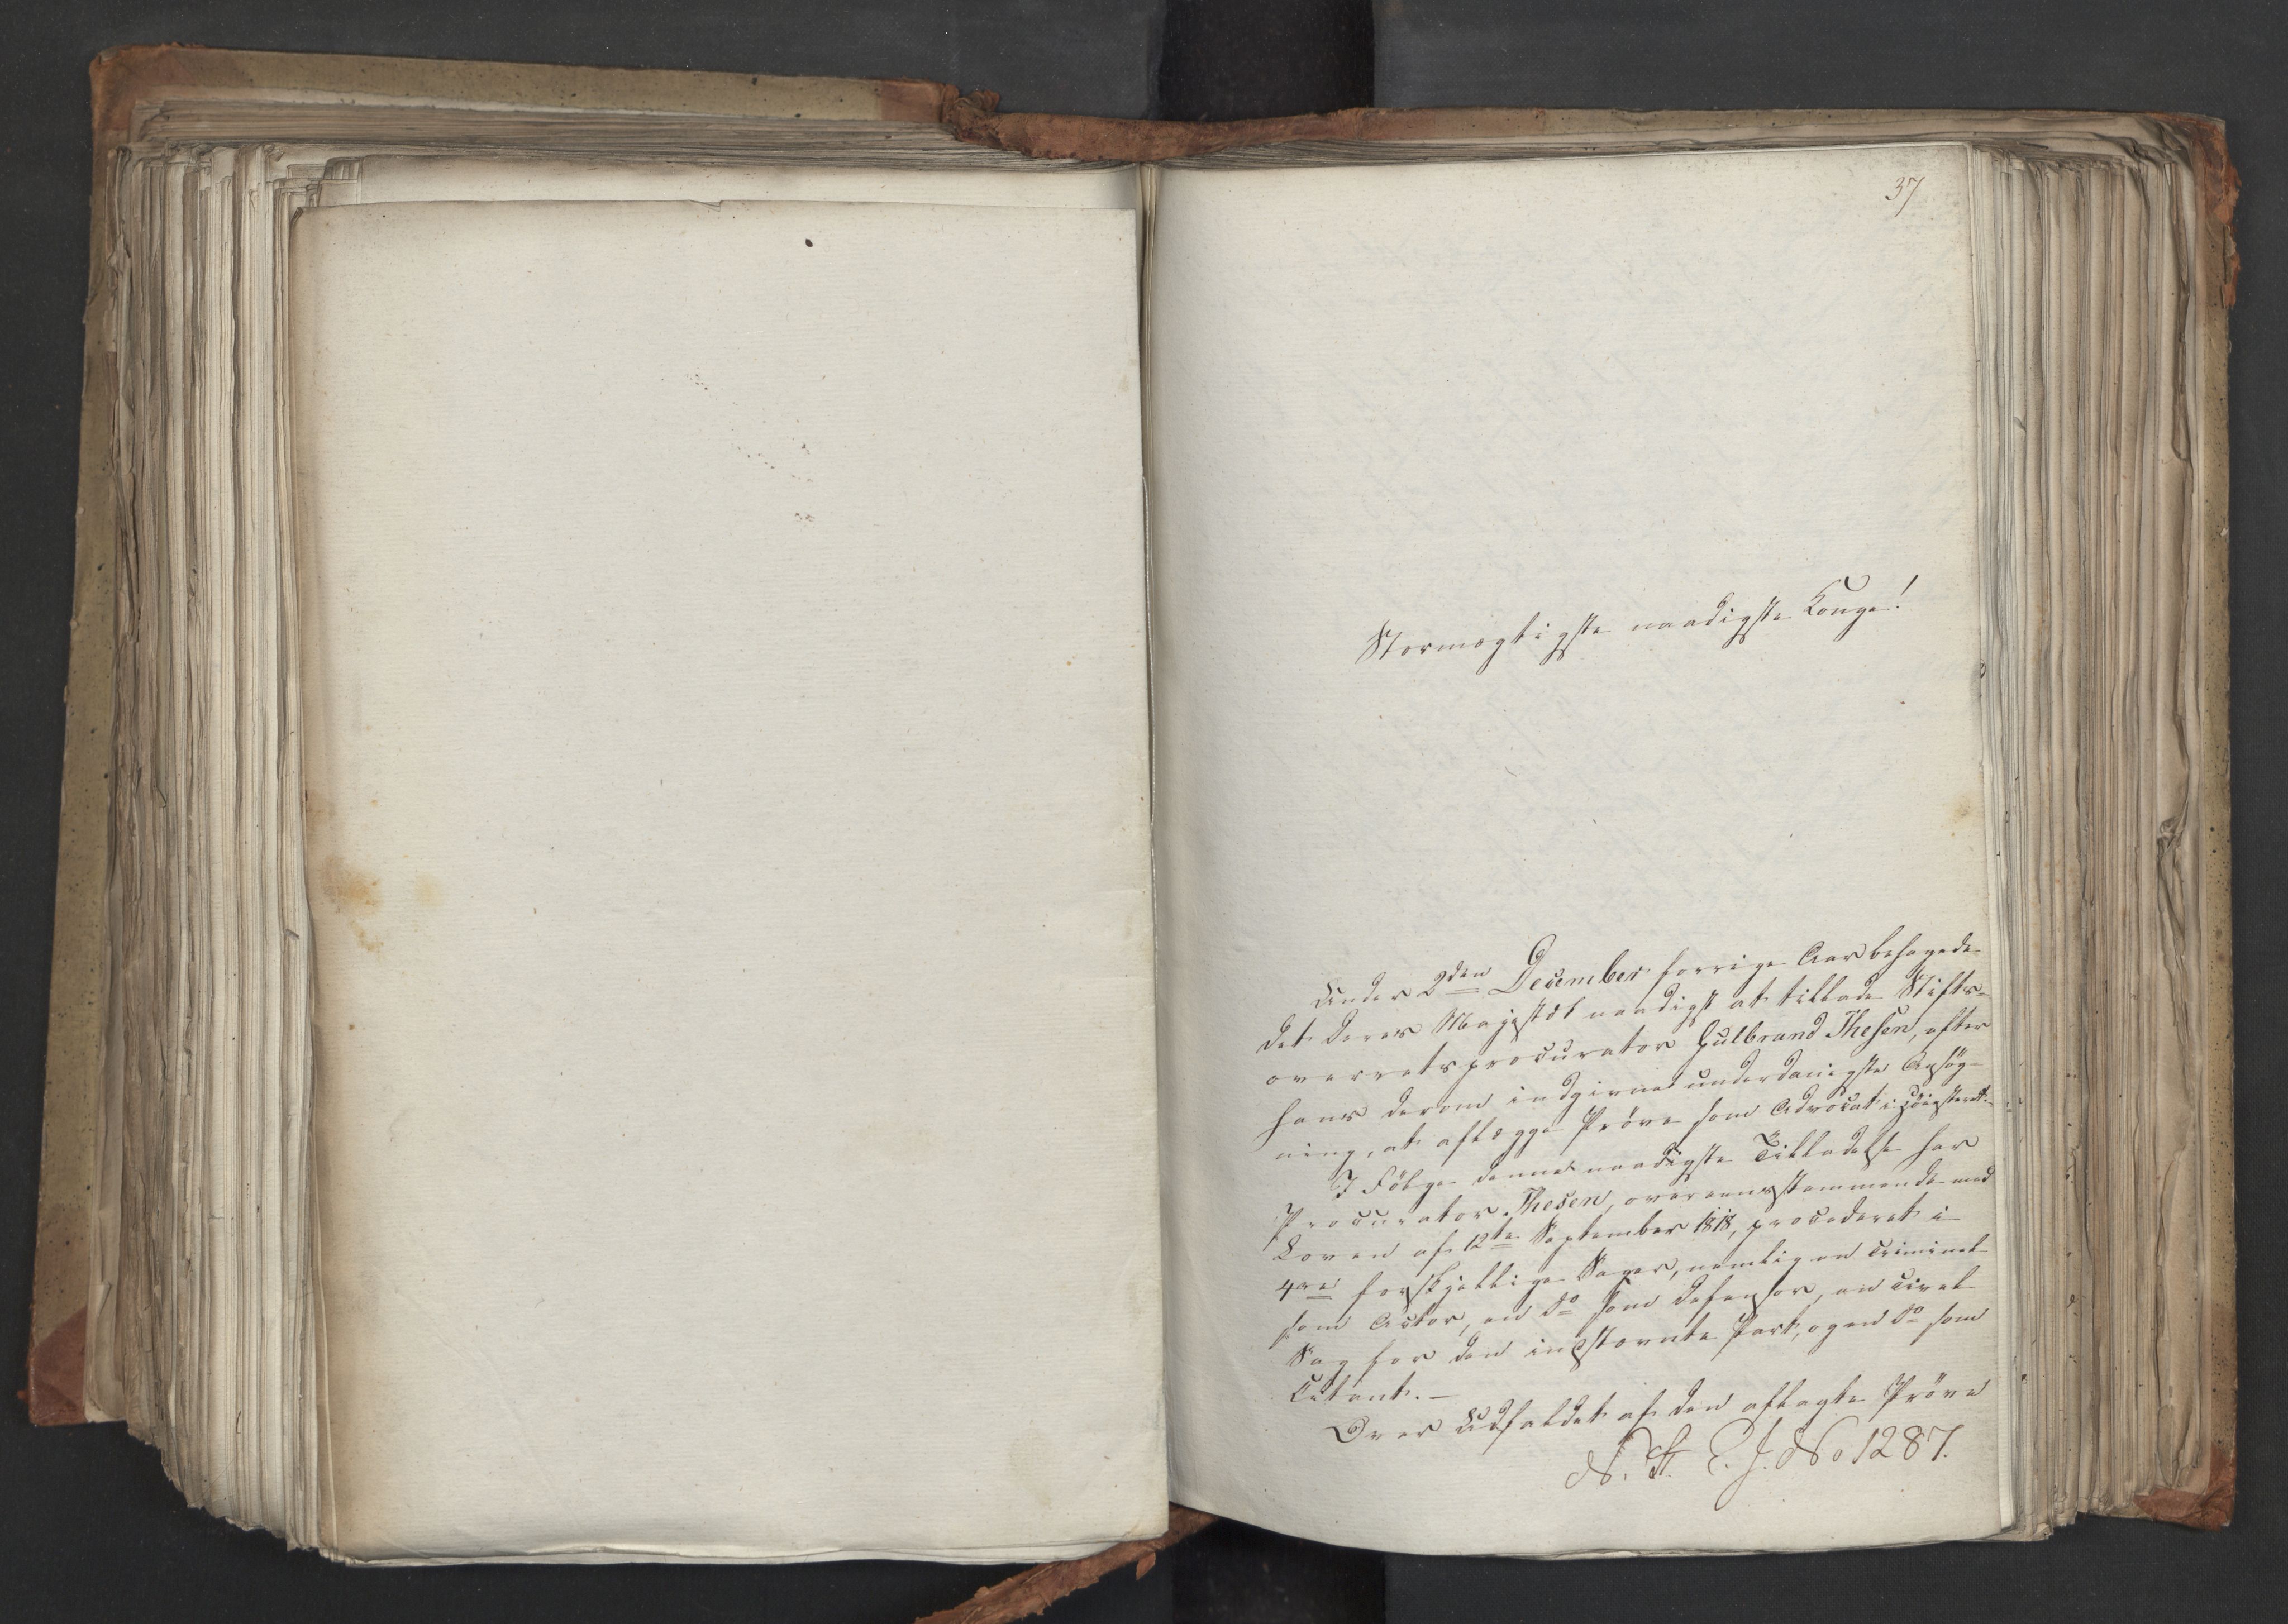 37
Stormægtigste naadigste Konge!
Under 2den December forrige Aar behagede
det Deres Majestæt naadigst at tillade Stifts-
overretsprocurator Gulbrand Thesen, efter
hans derom indgivne underdanigste Ansøg-
ning, at aflægge Prøve som Advocat i Høiesteret.
I Følge denne naadigste Tilladelse har
Procurator Thesen, overeensstemmende med
Loven af 12te September 1818, procederet i
4re forskjellige Sager, nemlig en Criminel
som Actor, en do som Defensor, en Civil
Sag for den indstævnte Part, og en do som
Citant.-
Over Udfaldet af den aflagte Prøve
N. St. E. J. No 1287.